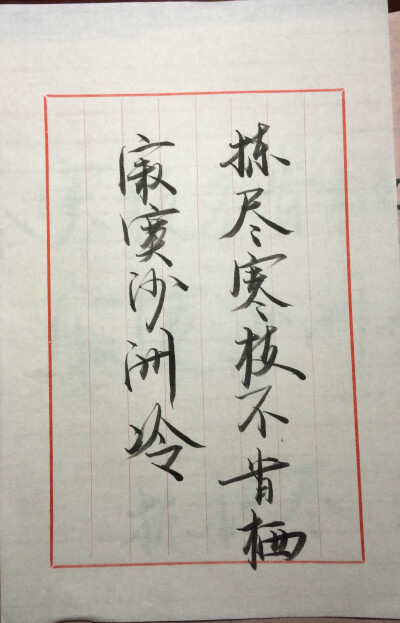 拣尽寒枝不肯栖
寂寞沙洲冷